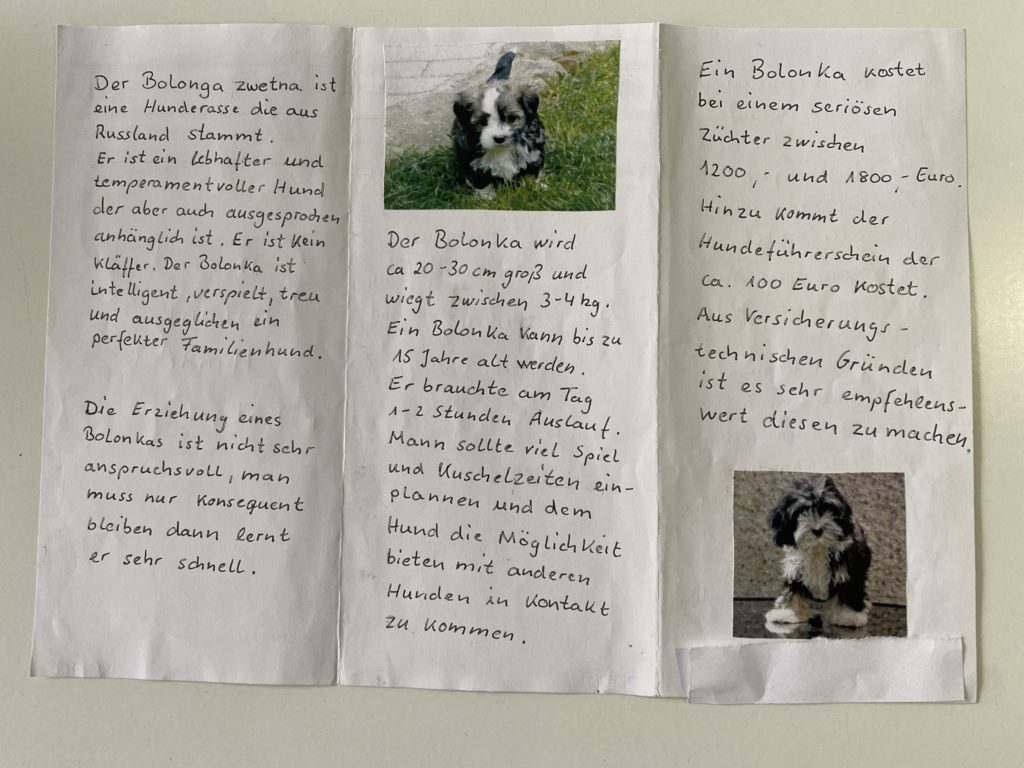 Der Bolonga zwetna ist
eine Hunderasse die aus
Russland stammt.
Er ist ein lebhafter und
temperamentvoller Hund
der aber auch ausgesprochen
anhänglich ist. Er ist kein
Kläffer. Der Bolonka ist
intelligent, verspielt, treu
und ausgeglichen ein
perfekter Familienhund.
Die Erziehung eines
Bolonkas ist nicht sehr
anspruchsvoll, man
muss nur konsequent
bleiben dann lernt
er sehr schnell.
Der Bolonka wird
ca 20-30 cm groß und
wiegt zwischen 3-4 kg.
Ein Bolonka kann bis zu
15 Jahre alt werden.
Er brauchte am Tag
1-2 Stunden Auslauf.
Mann sollte viel Spiel
und Kuschelzeiten ein-
plannen und dem
Hund die Möglichkeit
bieten mit anderen
Hunden in Kontakt
zu kommen.
Ein Bolonka kostet
bei einem seriösen
Züchter zwischen
1200,- und 1800,- Euro.
Hinzu kommt der
Hundeführerschein der
ca. 100 Euro kostet.
Aus Versicherungs-
technischen Gründen
ist es sehr empfehlens-
wert diesen zu machen.